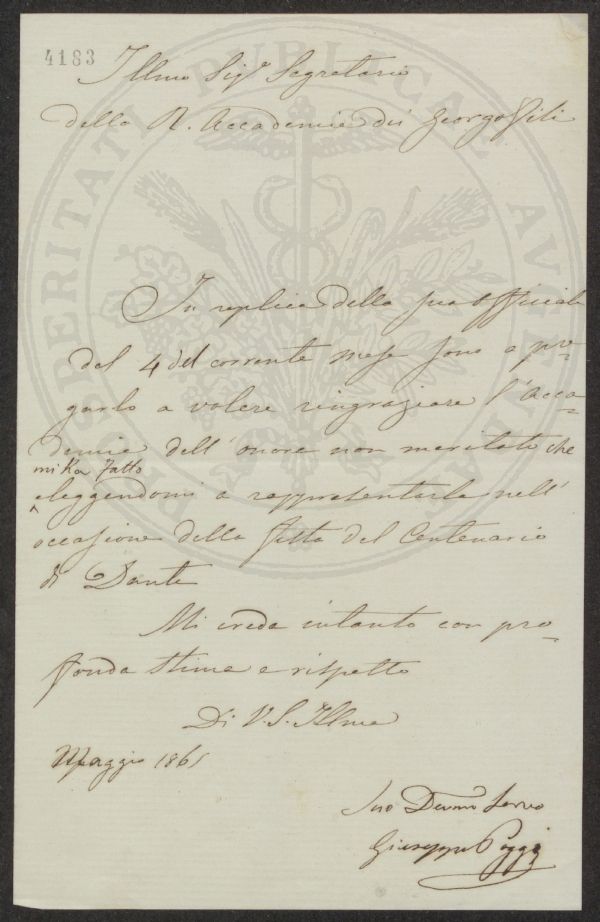 4183
Illmo Sigr. Segretario
della R. Accademia dei Georgofili
In replica della sua Officiale
del 4 del corrente mese sono a pre-
garlo a volere ringraziare l'Acca-
demia dell'onore non meritato che
mi ha fatto
eleggendomi a rappresentarla nell'
occasione della festa del Centenario
di Dante
Mi creda intanto con pro-
fonda stima e rispetto
Di V.S. Illma
Maggio 1865
Suo Devmo Servo
Giuseppe Poggi
PROSPERITATI PUBLICAE AUGENDAE